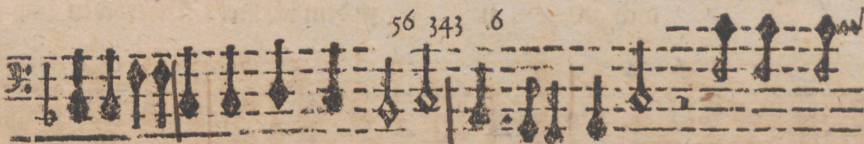 56 343 6